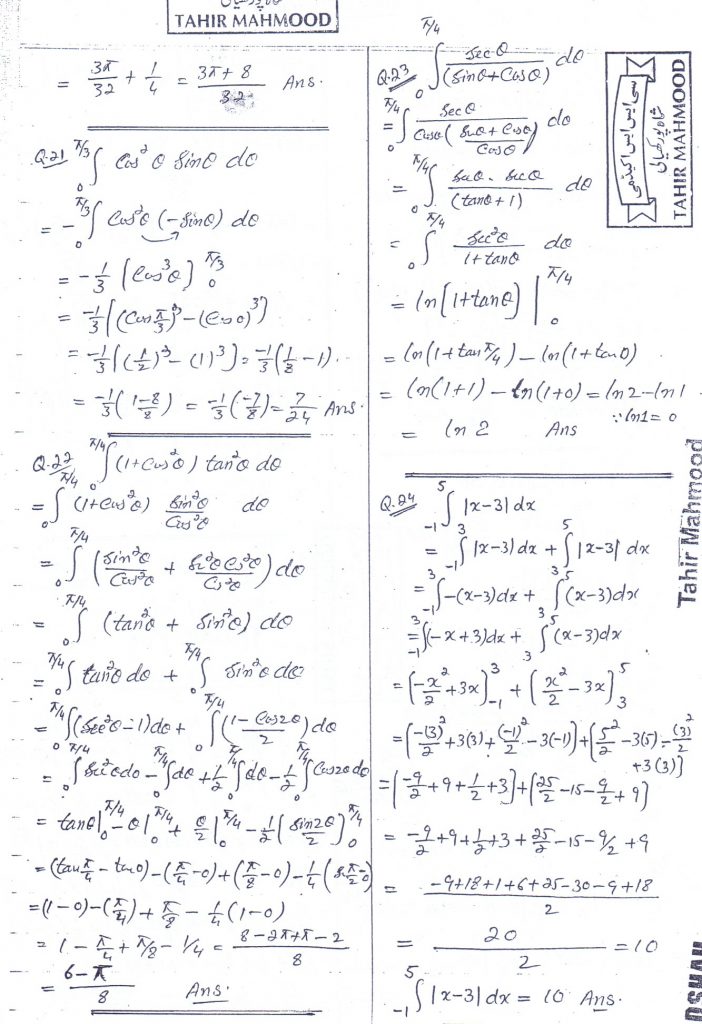 TAHIR MAHMOOD
= 3π/32 + 1/4 = 3π+8/32 Ans.
Q.21 ∫₀^{π/3} Cos²θ Sinθ dθ
= -∫₀^{π/3} Cos²θ (-Sinθ) dθ
= -1/3 [Cos³θ]₀^{π/3}
= -1/3 [(Cos π/3)³ - (Cos 0)³]
= -1/3 [(1/2)³ - (1)³] = -1/3 (1/8 - 1).
= -1/3 (1-8/8) = -1/3 (-7/8) = 7/24 Ans.
Q.22 ∫₀^{π/4} (1+Cos²θ) tan²θ dθ
= ∫₀^{π/4} (1+Cos²θ) Sin²θ/Cos²θ dθ
= ∫₀^{π/4} (Sin²θ/Cos²θ + Sin²θ Cos²θ/Cos²θ) dθ
= ∫₀^{π/4} (tan²θ + Sin²θ) dθ
= ∫₀^{π/4} tan²θ dθ + ∫₀^{π/4} Sin²θ dθ
= ∫₀^{π/4} (Sec²θ-1) dθ + ∫₀^{π/4} (1-Cos2θ/2) dθ
= ∫₀^{π/4} Sec²θ dθ - ∫₀^{π/4} dθ + 1/2 ∫₀^{π/4} dθ - 1/2 ∫₀^{π/4} Cos2θ dθ
= tanθ|₀^{π/4} - θ|₀^{π/4} + θ/2|₀^{π/4} - 1/2 (Sin2θ/2)₀^{π/4}
= (tan π/4 - tan 0) - (π/4 - 0) + (π/8 - 0) - 1/4 (Sin π/2 - 0)
= (1-0) - (π/4) + π/8 - 1/4 (1-0)
= 1 - π/4 + π/8 - 1/4 = 8-2π+π-2/8
= 6-π/8 Ans.
Q.23 ∫₀^{π/4} Secθ/(Sinθ+Cosθ) dθ
= ∫₀^{π/4} Secθ/Cosθ(Sinθ+Cosθ/Cosθ) dθ
= ∫₀^{π/4} Secθ . Secθ/(tanθ+1) dθ
= ∫₀^{π/4} Sec²θ/1+tanθ dθ
= ln[1+tanθ] |₀^{π/4}
= ln(1+tan π/4) - ln(1+tan 0)
= ln(1+1) - ln(1+0) = ln2 - ln1
∵ ln1 = 0
= ln 2 Ans
Q.24 ∫₋₁^5 |x-3| dx
= ∫₋₁^3 |x-3| dx + ∫₃^5 |x-3| dx
= ∫₋₁^3 -(x-3)dx + ∫₃^5 (x-3)dx
= ∫₋₁^3 (-x+3)dx + ∫₃^5 (x-3)dx
= (-x²/2 + 3x)₋₁^3 + (x²/2 - 3x)₃^5
= (-(3)²/2 + 3(3) + (-1)²/2 - 3(-1)) + (5²/2 - 3(5) - (3)²/2
+ 3(3))
= (-9/2 + 9 + 1/2 + 3) + (25/2 - 15 - 9/2 + 9)
= -9/2 + 9 + 1/2 + 3 + 25/2 - 15 - 9/2 + 9
= -9+18+1+6+25-30-9+18/2
= 20/2 = 10
∫₋₁^5 |x-3| dx = 10 Ans.
TAHIR MAHMOOD
Tahir Mahmood